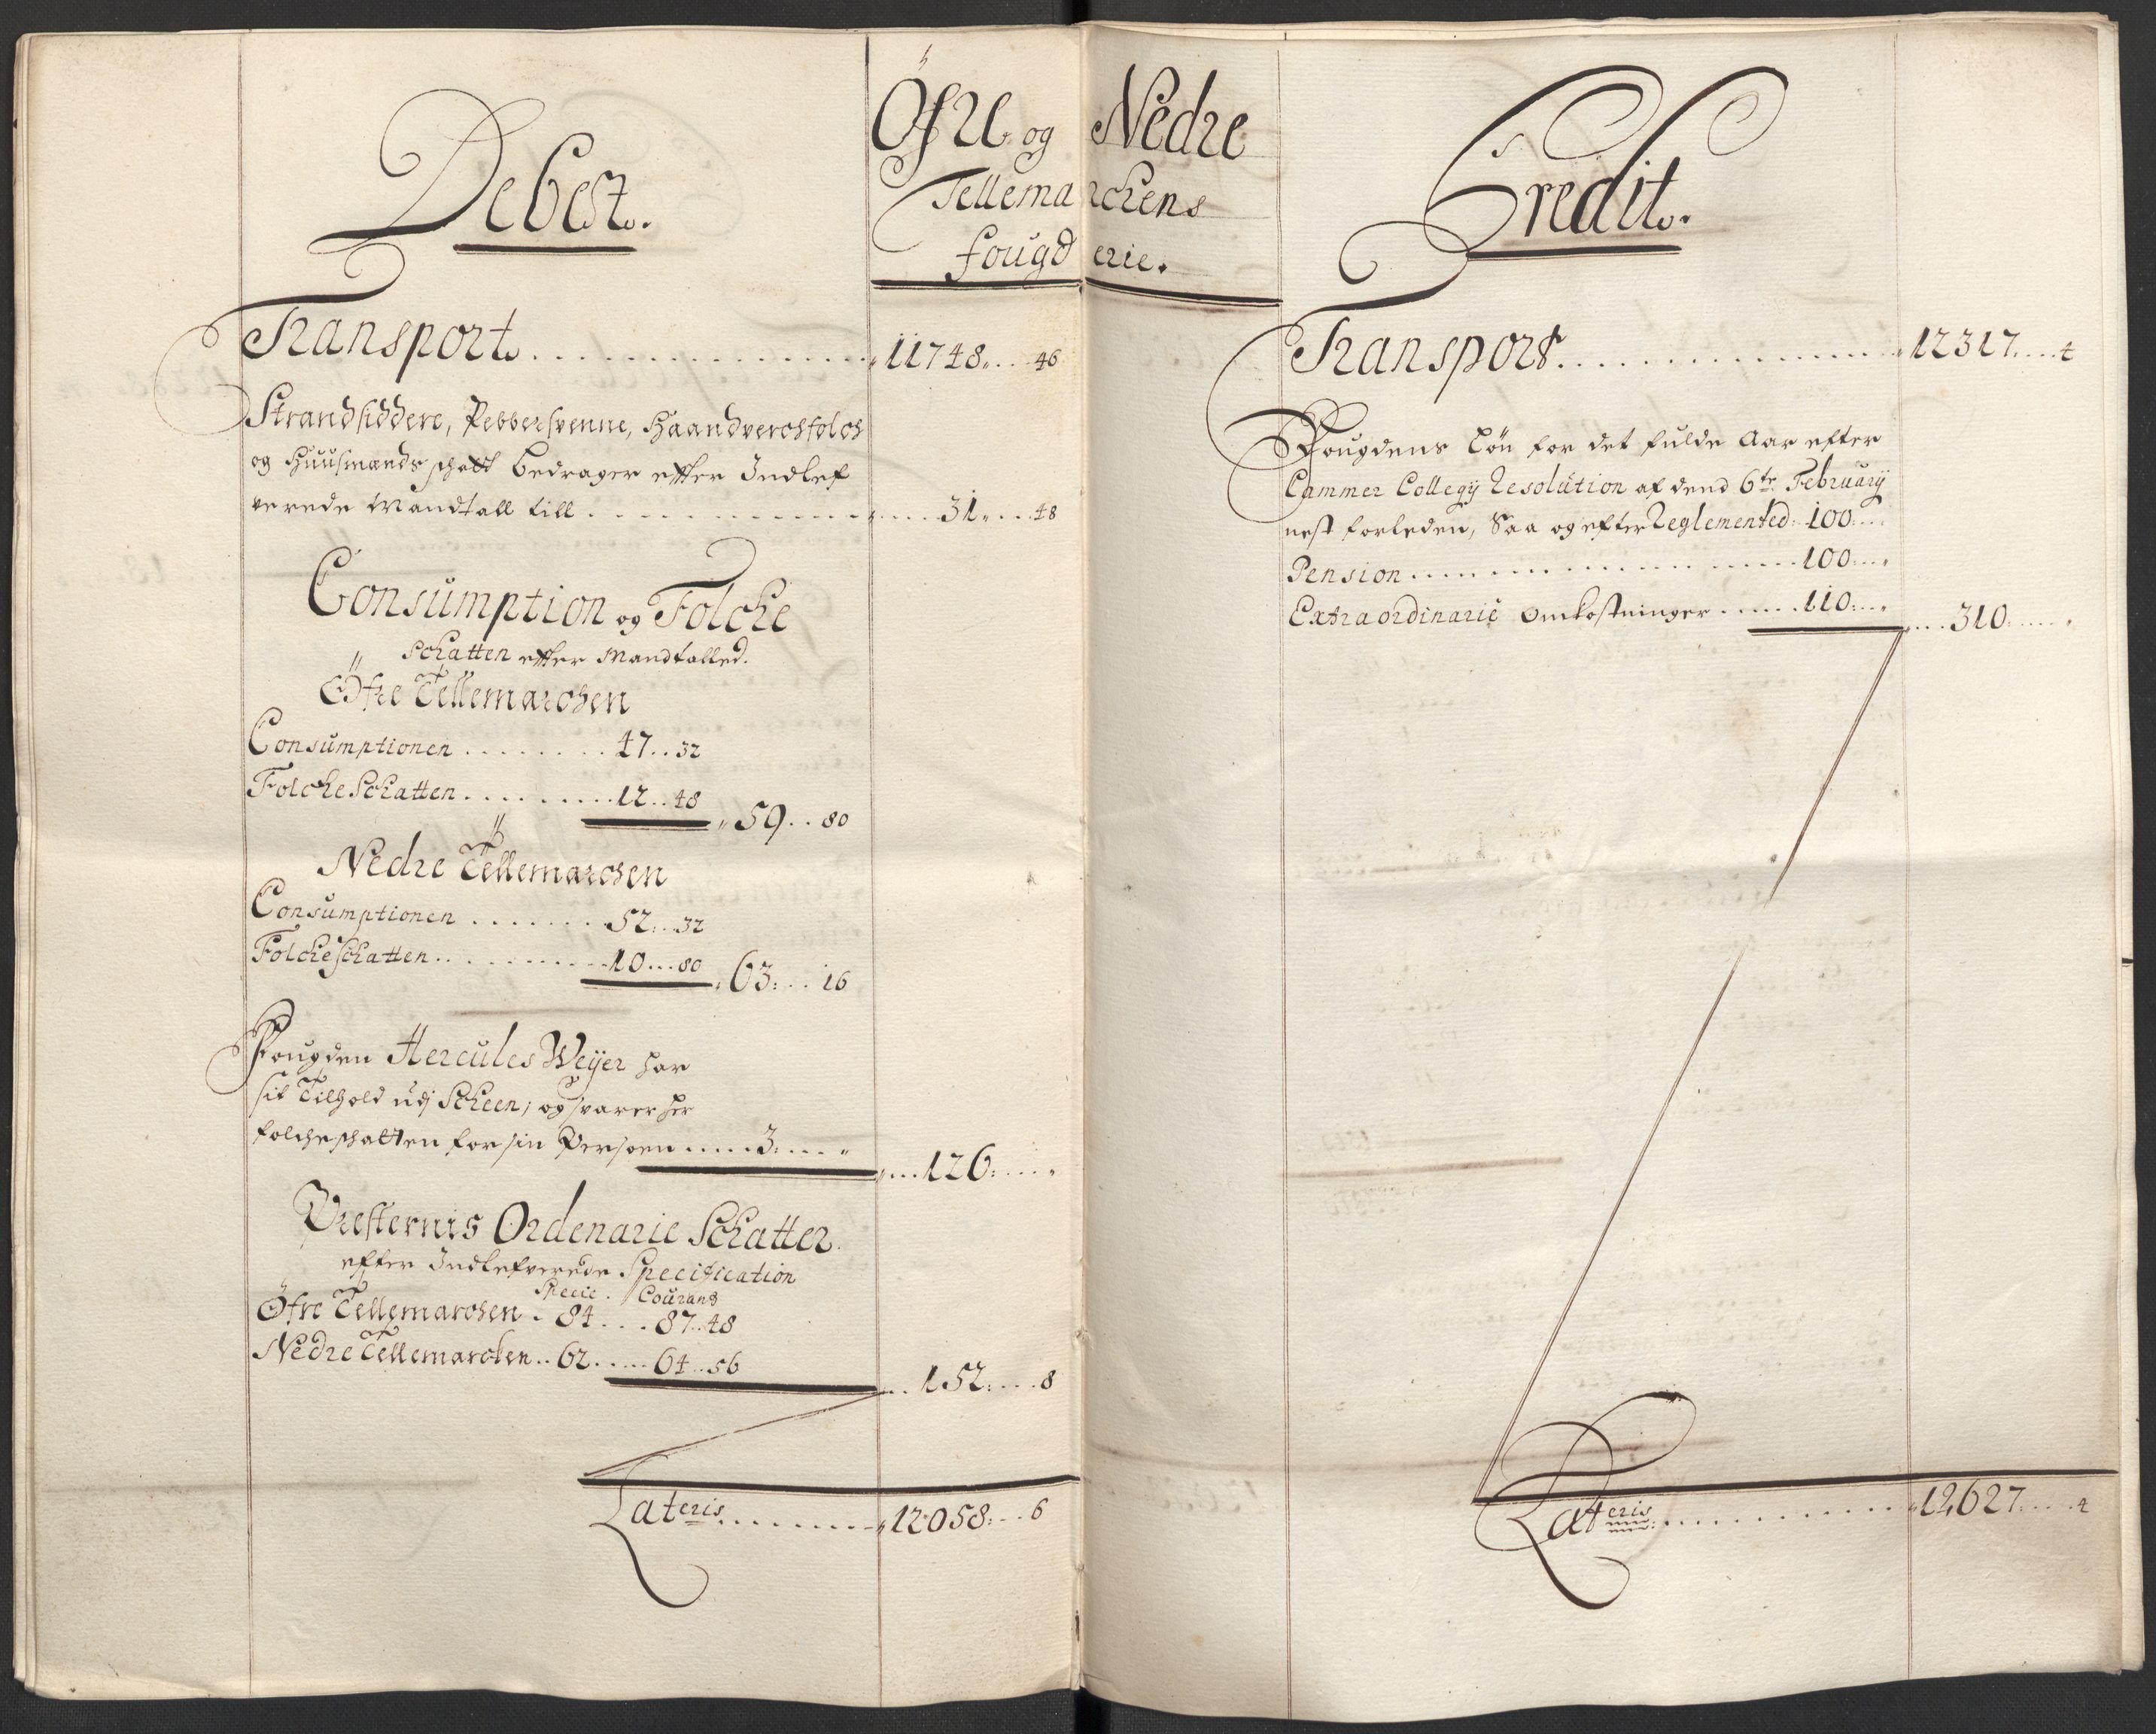 Debet.
Öfre og Nedre
Tellemarchens
fougderie.
Transport . . . 11748 . . 46
Strandsiddere, Pebbersvenne, Haandverchsfolch
og Huusmands schatt bedrager effter Indlef
verede Mandtall till . . . 31 . . 48
Consumption og Folche
Schatten effter Mandtalled.
Öfre Tellemarchen
Consumptionen . . . 47 . . 32
Folche Schatten . . . 12 . . 48
59 . . 80
Nedre Tellemarchen
Consumptionen . . . 52 . . 32
Folche schatten . . . 10 . . 80
63 . . 16
Fougden Hercules Weyer har
sit Tilhold udj Scheen, og svarer her
folcheschatten for sin Persoen . . . 3 . . "
126 . . "
Presternis Ordenarie Schatter
effter Indlefverede Specification
Specie. Courant
Öfre Tellemarchen . 84 . . . 87 . . 48
Nedre Tellemarchen . . 62 . . . 64 . . 56
152 . . 8
Lateris . . . 12058 . . 6
Credit.
Transport . . . 12317 . . 4
Fougdens Løn for det fulde Aar efter
Cammer Collegij Resolution af dend 6te February
nest forleden, Saa og efter Reglemented 100 . .
Pension . . . 100 . . "
Extraordinarie Omkostninger . . . 110 . . "
310 . . "
Lateris . . . 12627 . . 4